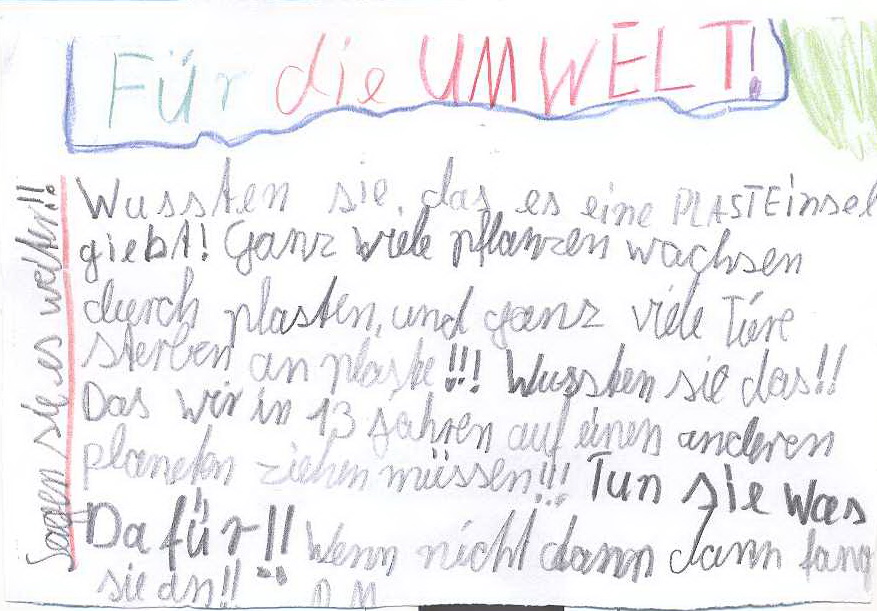 Für die UMWELT!
Wussten sie, das es eine PLASTEinsel
giebt! Ganz viele pflanzen wachsen
durch plasten, und ganz viele Tiere
sterben an plaste!!! Wussten sie das!!
Das wir in 13 jahren auf einen anderen
planeten ziehen müssen!!! Tun sie was
Dafür!! Wenn nicht dann dann fang
sie an!!
Sagen sie es weiter!!